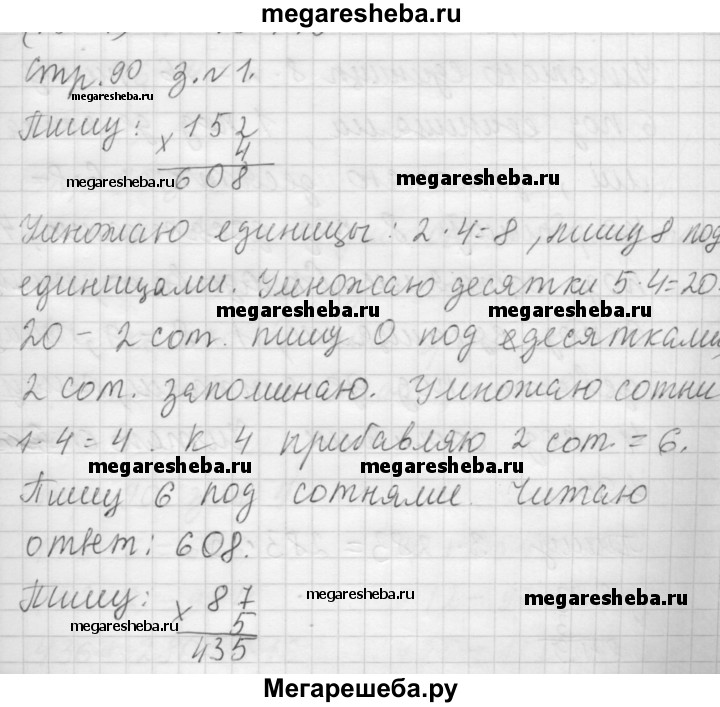 megaresheba.ru
Стр. 90 з. №1.
megaresheba.ru
Пишу: 152
× 4
megaresheba.ru 608 megaresheba.ru
Умножаю единицы: 2·4=8, пишу 8 под
единицами. Умножаю десятки 5·4=20.
megaresheba.ru megaresheba.ru
20 – 2 сот. пишу 0 под десятками,
2 сот. запоминаю. Умножаю сотни
1·4=4. К 4 прибавляю 2 сот. = 6.
megaresheba.ru megaresheba.ru
Пишу 6 под сотнями. Читаю
ответ: 608.
Пишу: 87
megaresheba.ru megaresheba.ru
× 5
megaresheba.ru
435
Мегарешеба.ру